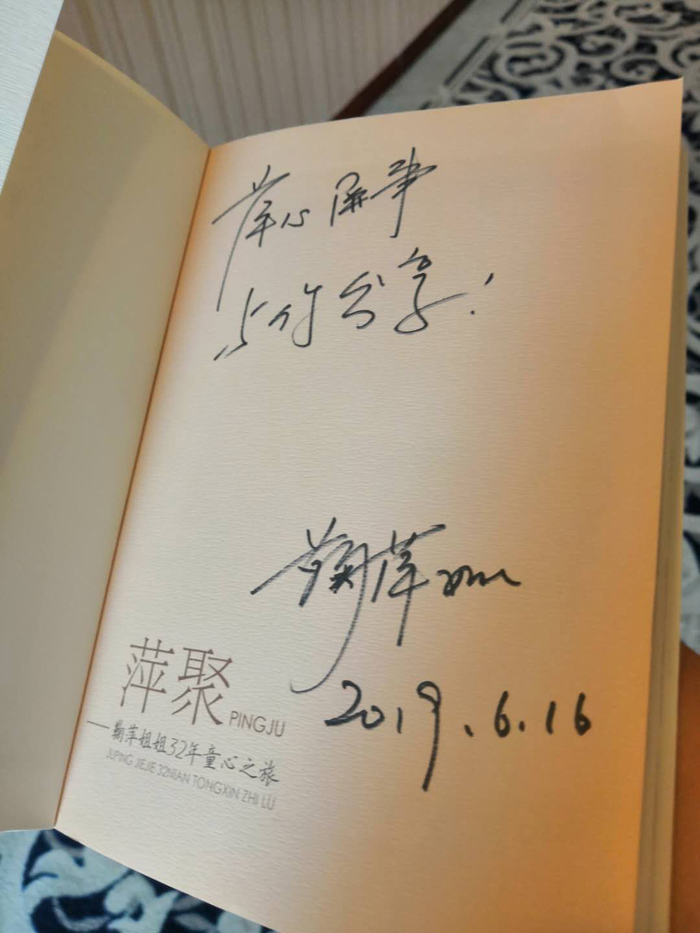 心 事
与你分享！
鞠萍
2019.6.16
萍聚 PINGJU
——鞠萍姐姐32年童心之旅
JUPING JIEJIE 32NIAN TONGXIN ZHI LU